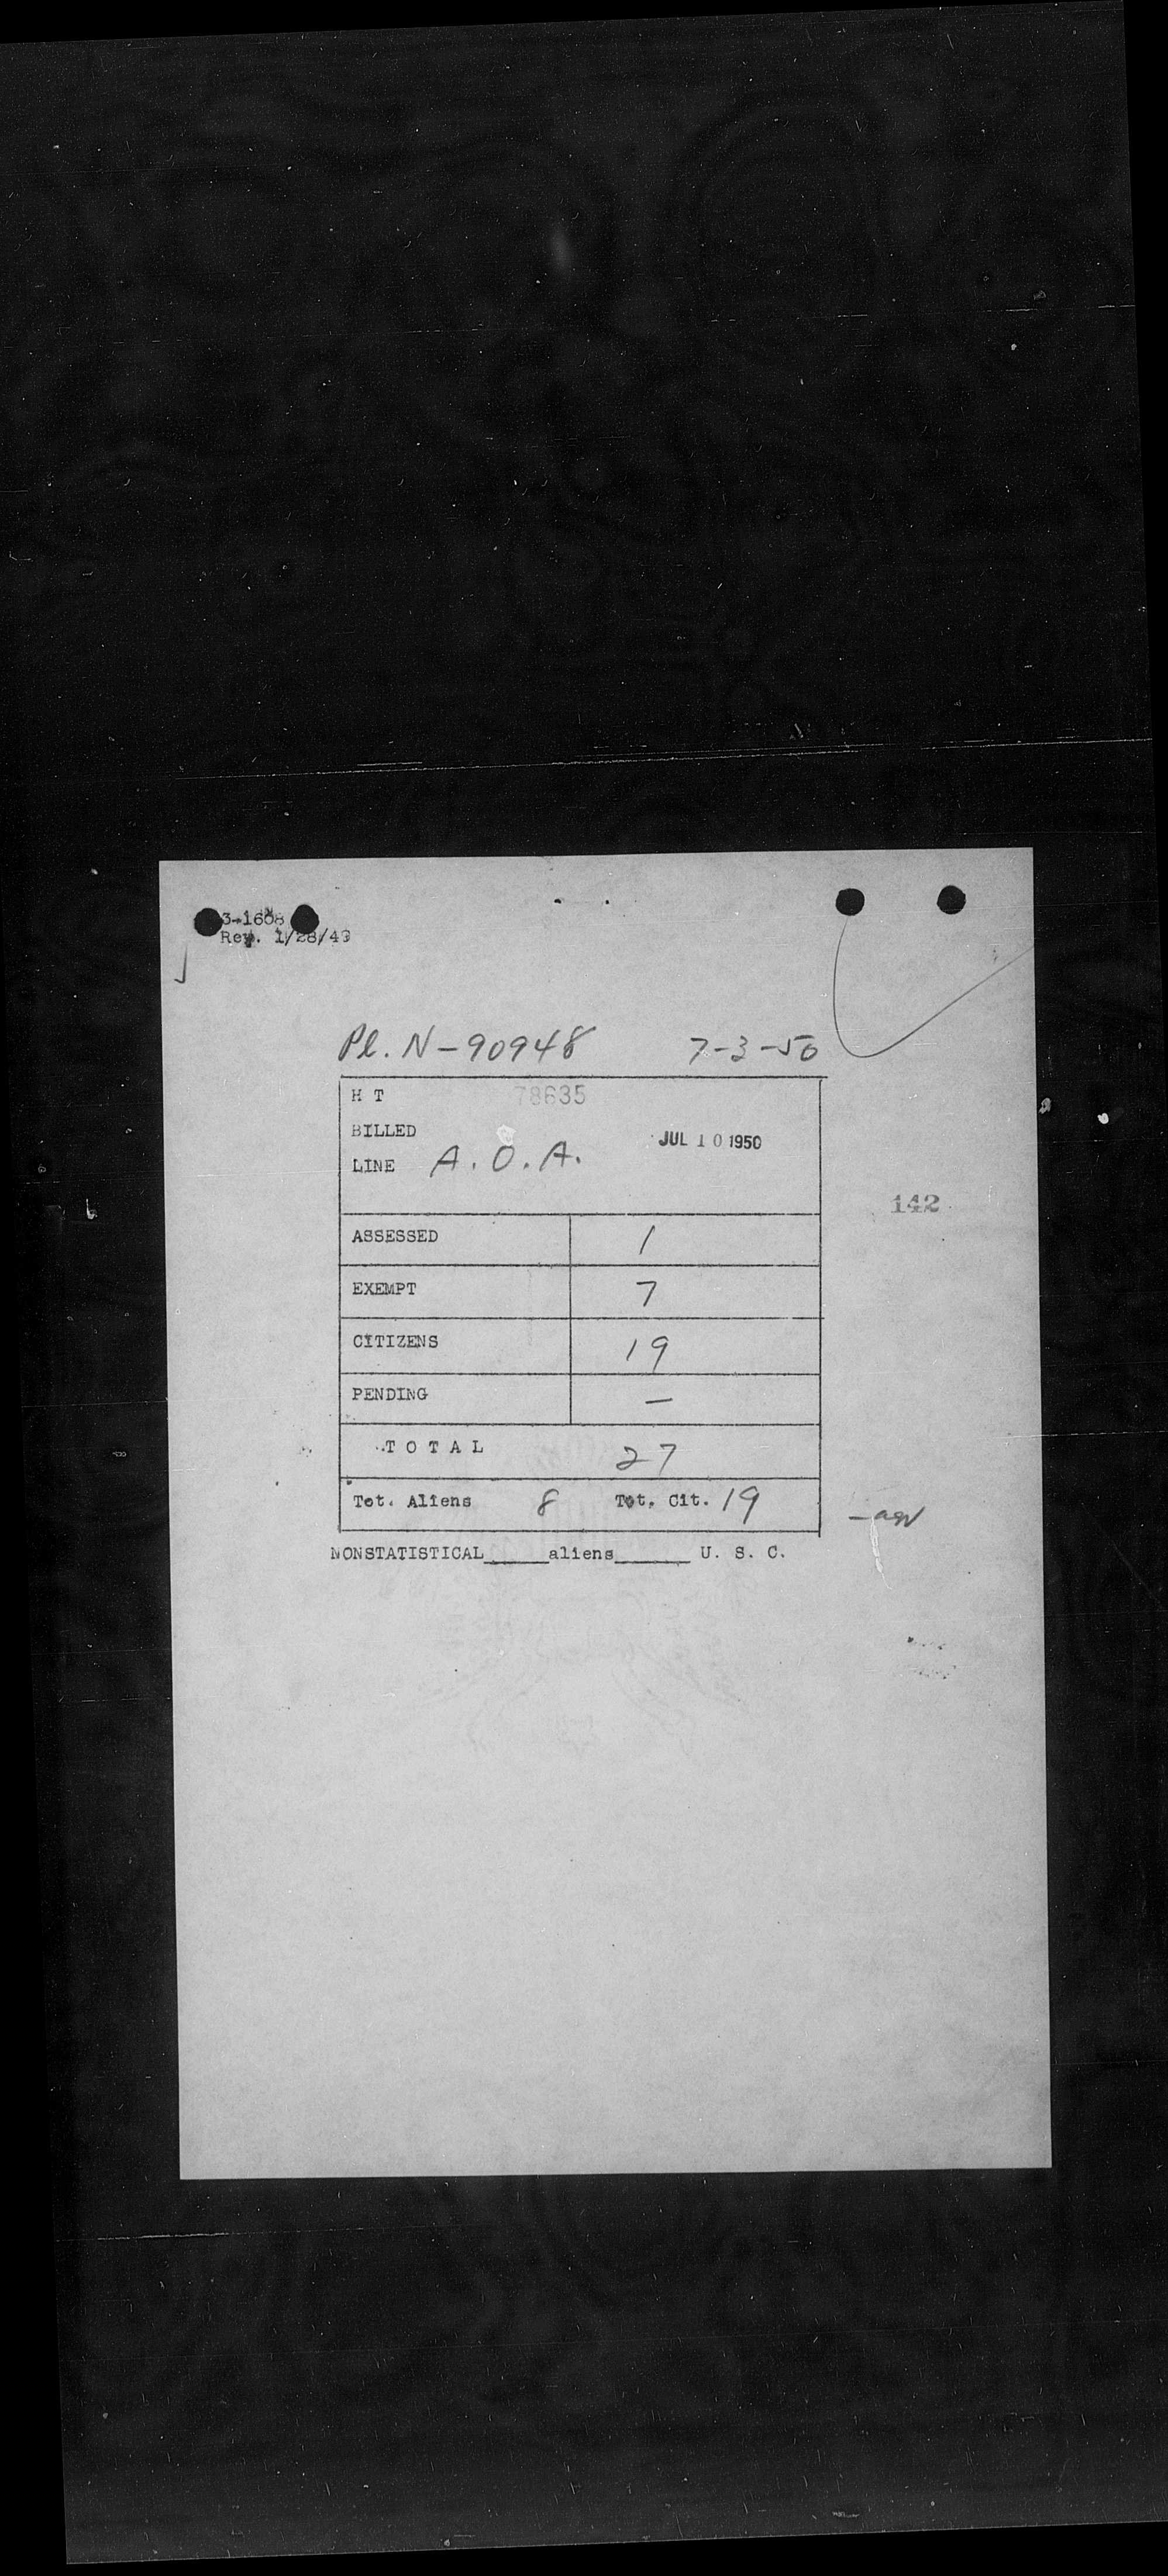 3-1608
Rev. 1/28/49
Pl. N-90948 7-3-50
H T 78635
BILLED JUL 10 1950
LINE A.O.A.
142
ASSESSED 1
EXEMPT 7
CITIZENS 19
PENDING —
TOTAL 27
Tot. Aliens 8 Tot. Cit. 19
NONSTATISTICAL______aliens_______ U. S. C.